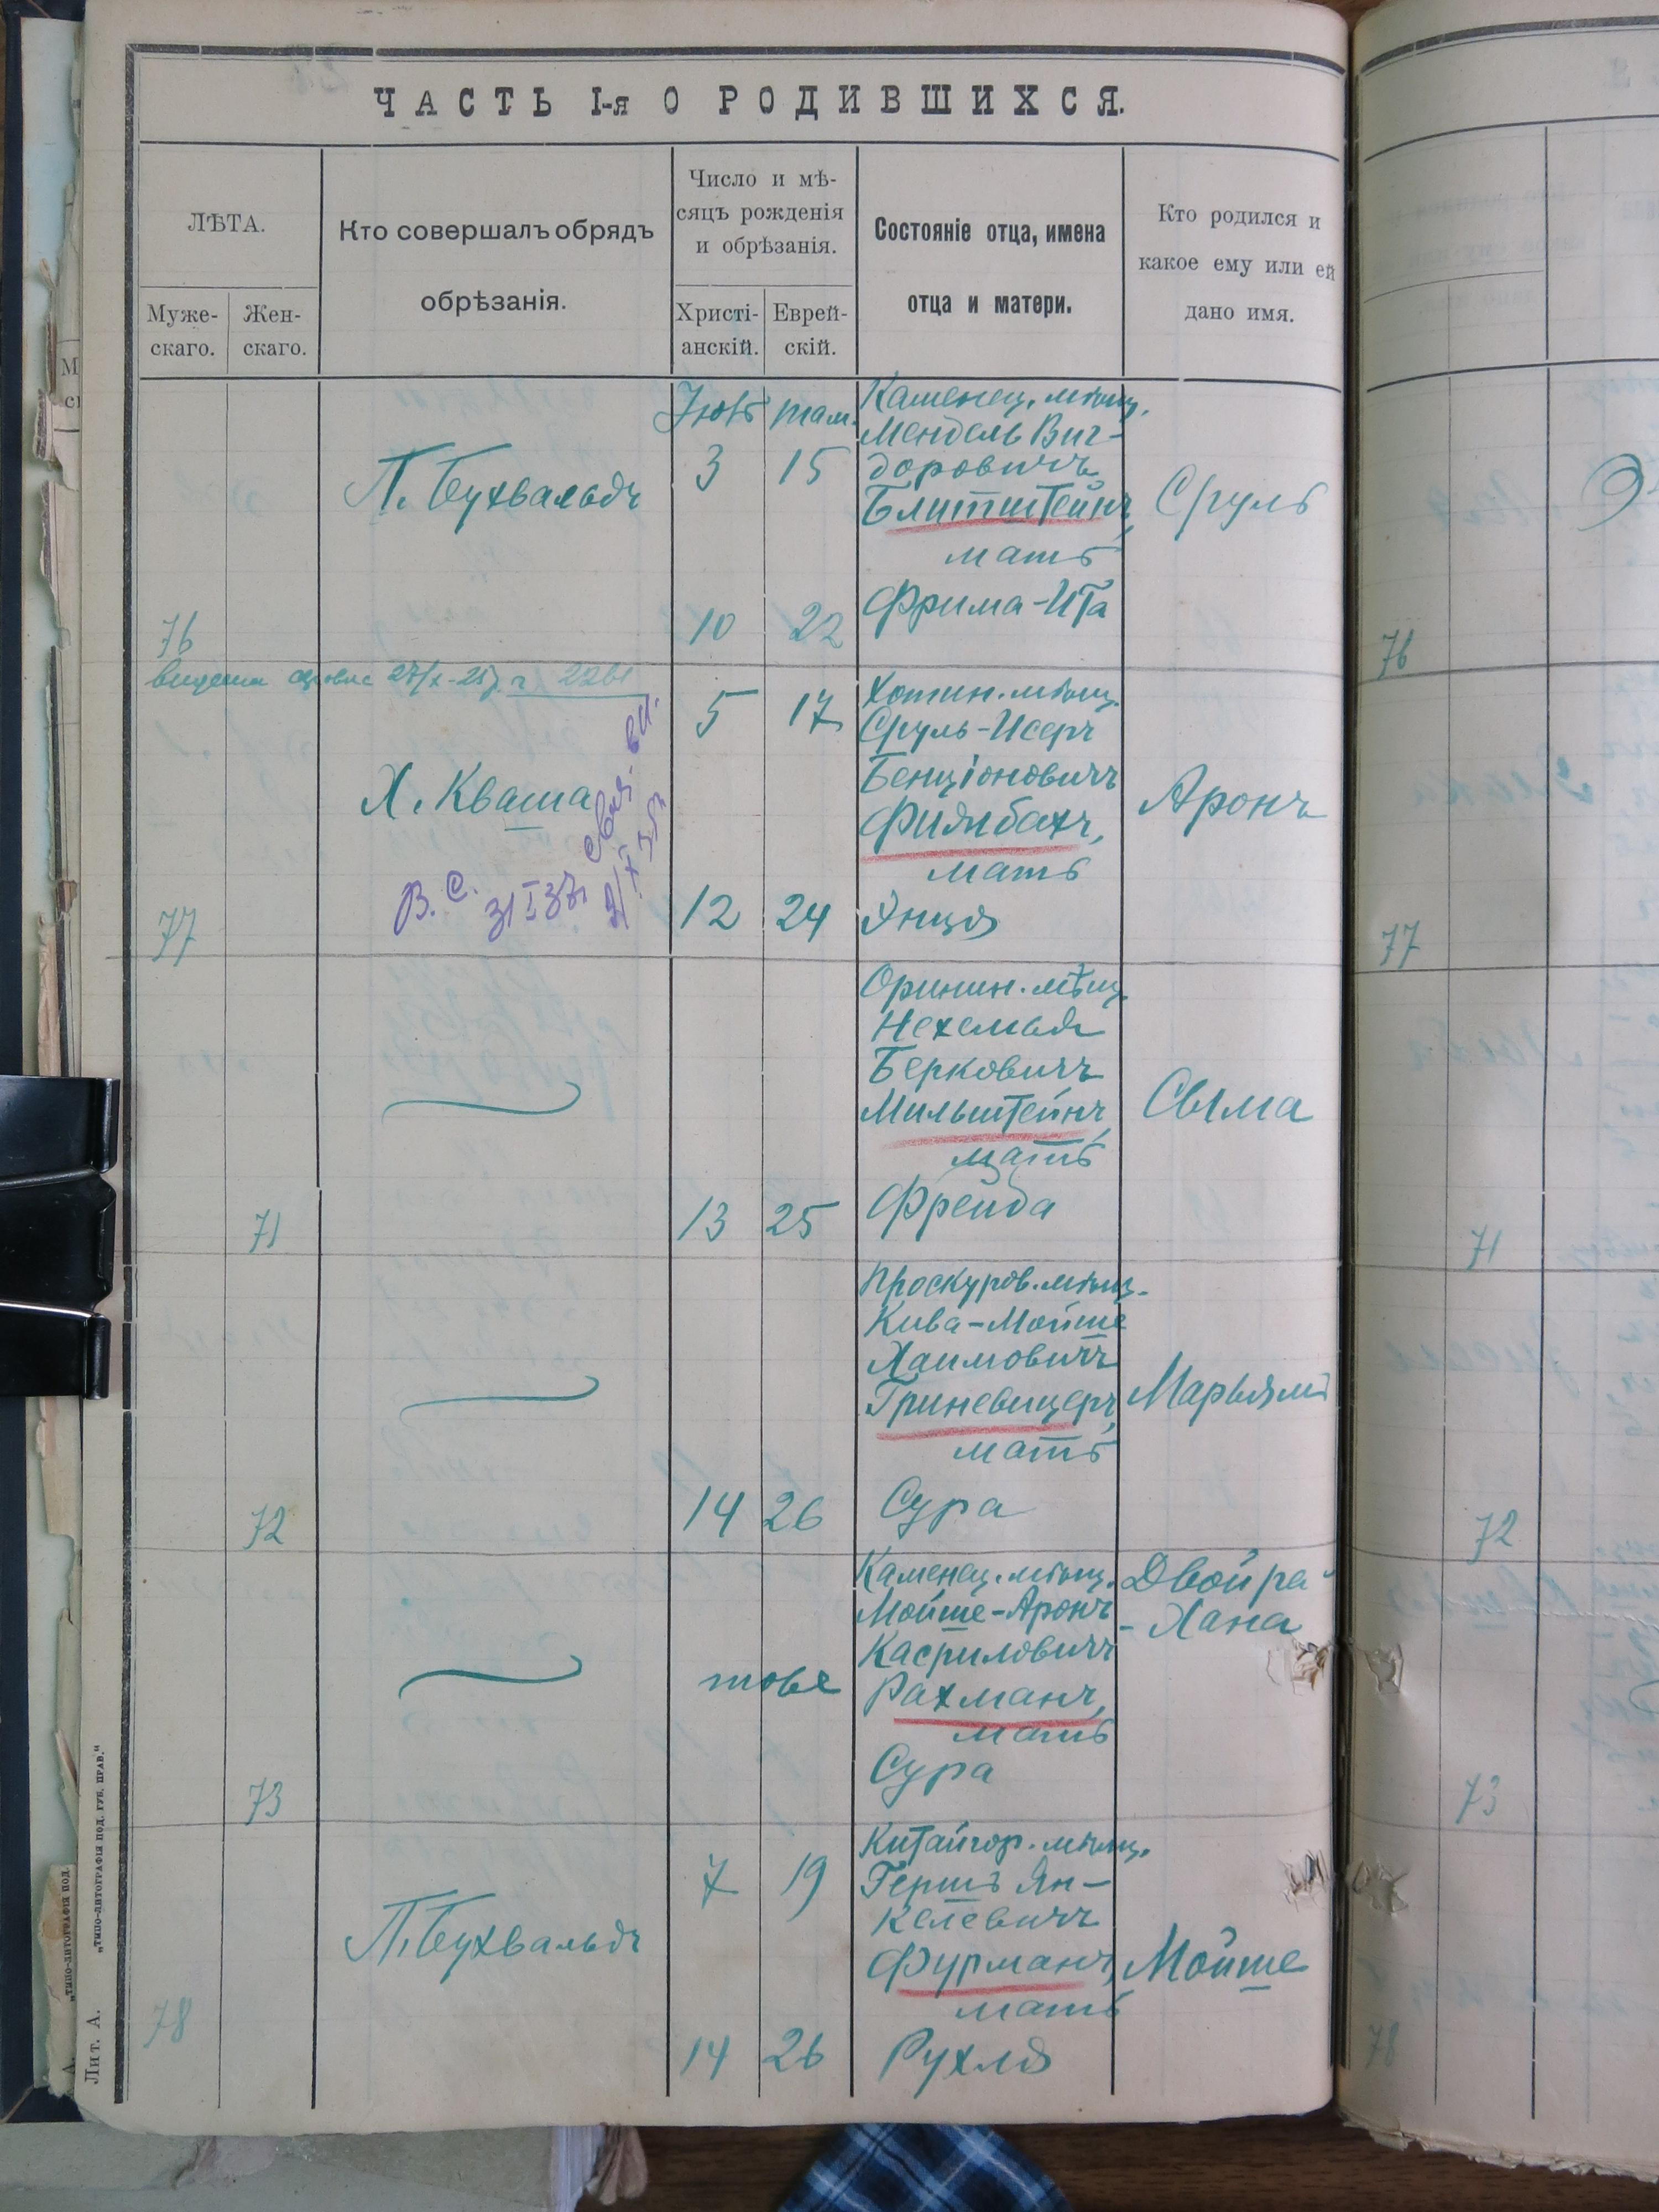 ЧАСТЬ I-я О РОДИВШИХСЯ.
ЛѢТА.
Муже-
скаго.
Жен-
скаго.
Кто совершалъ обрядъ
обрѣзанія.
Число и мѣ-
сяцъ рожденія
и обрѣзанія.
Христі-
анскій.
Еврей-
скій.
Состояніе отца, имена
отца и матери.
Кто родился и
какое ему или ей
дано имя.
76
П. Бухвальдъ
Іюль там.
3 15
10 22
Каменец. мѣщ.
Мендель Виг-
доровичъ
Блитштейнъ,
мать
Фрима-Ита
Сруль
77
Х. Кваша
В. С. 31 I 37
5 17
12 24
Хотин. мѣщ.
Сруль-Исеръ
Бенціоновичъ
мать
Энця
Аронъ
71
13 25
Оринин. мѣщ.
Нехемья
Берковичъ
Мильштейнъ,
мать
Фрейда
Сыма
72
14 26
Проскуров. мѣщ.
Кива-Мойше
Хаимовичъ
Гриневицеръ,
мать
Сура
Марьямъ
73
тове
Каменец. мѣщ.
Мойше-Аронъ
Касриловичъ
Рахманъ,
мать
Сура
Двойра-
-Хана
78
П. Бухвальдъ
7 19
14 26
Китайгор. мѣщ.
Гершъ Ян-
келевичъ
Фурманъ,
мать
Рухля
Мойше
Лит. А. „ТИПО-ЛИТОГРАФІЯ ПОД. ГУБ. ПРАВ."
76
77
71
72
73
78